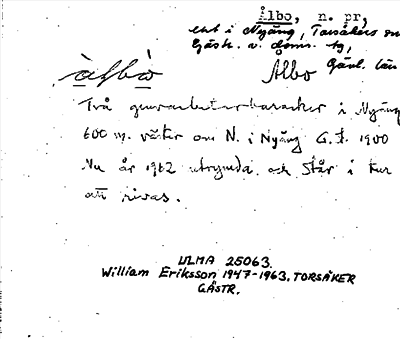 Ålbo, n. pr,
ent i Nyäng, Torsåkers sn
Gästr. v. doms. tg,
Gävl. län
àlbò Ålbo
Två gruvarbetarbaracker i Nyäng
600 m. väster om N. i Nyäng G. f. 1900
Nu år 1962 utrymda och står i tur
att rivas.
ULMA 25063.
William Eriksson 1947-1963. TORSÅKER
GÄSTR.